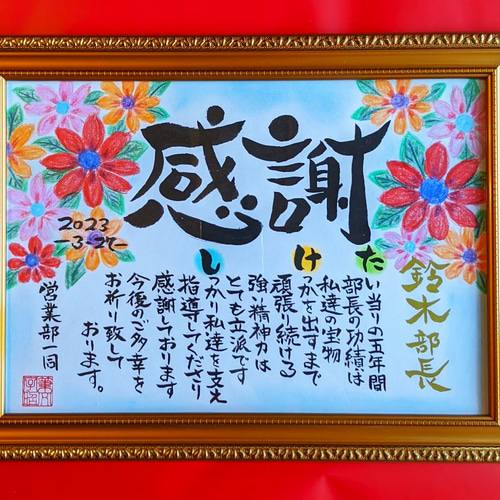 感謝
鈴木部長
たい当りの五年間
部長の功績は
私達の宝物
けつかを出すまで
頑張り続ける
強い精神力は
とても立派です
しっかり私達を支え
指導してくださり
感謝しております
今後のご多幸を
お祈り致して
おります。
営業部一同
2023
-3.27-